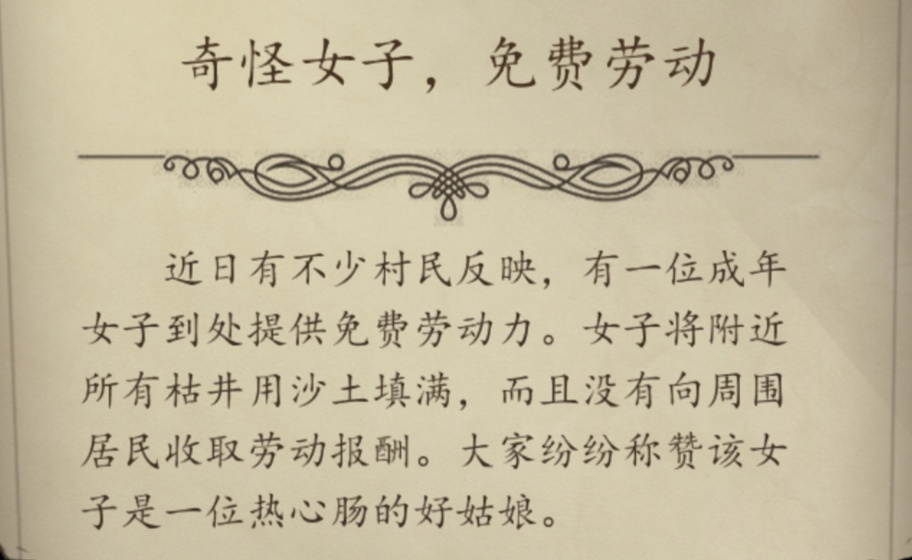 奇怪女子，免费劳动
近日有不少村民反映，有一位成年
女子到处提供免费劳动力。女子将附近
所有枯井用沙土填满，而且没有向周围
居民收取劳动报酬。大家纷纷称赞该女
子是一位热心肠的好姑娘。